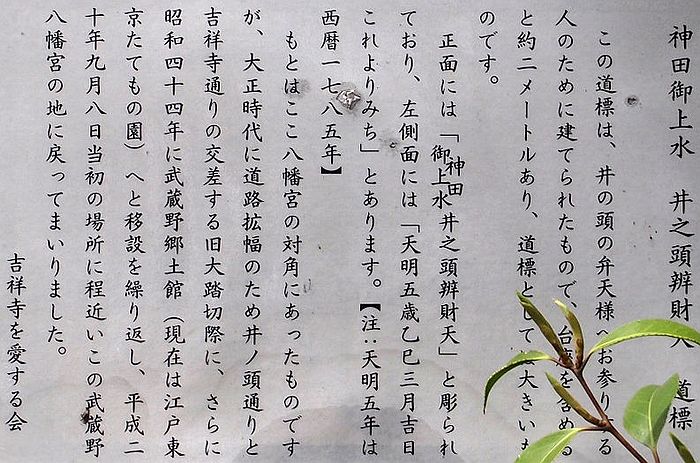 神田御上水 井之頭辨財天 道標
この道標は、井の頭の弁天様へお参りする
人のために建てられたもので、台座を含める
と約二メートルあり、道標として大きいも
のです。
正面には「神田御上水井之頭辨財天」と彫られ
ており、左側面には「天明五歳乙巳三月吉日
これよりみち」とあります。【注:天明五年は
西暦一七八五年】
もとはここ八幡宮の対角にあったものです
が、大正時代に道路拡幅のため井ノ頭通りと
吉祥寺通りの交差する旧大踏切際に、さらに
昭和四十四年に武蔵野郷土館(現在は江戸東
京たてもの園)へと移設を繰り返し、平成二
十年九月八日当初の場所に程近いこの武蔵野
八幡宮の地に戻ってまいりました。
吉祥寺を愛する会